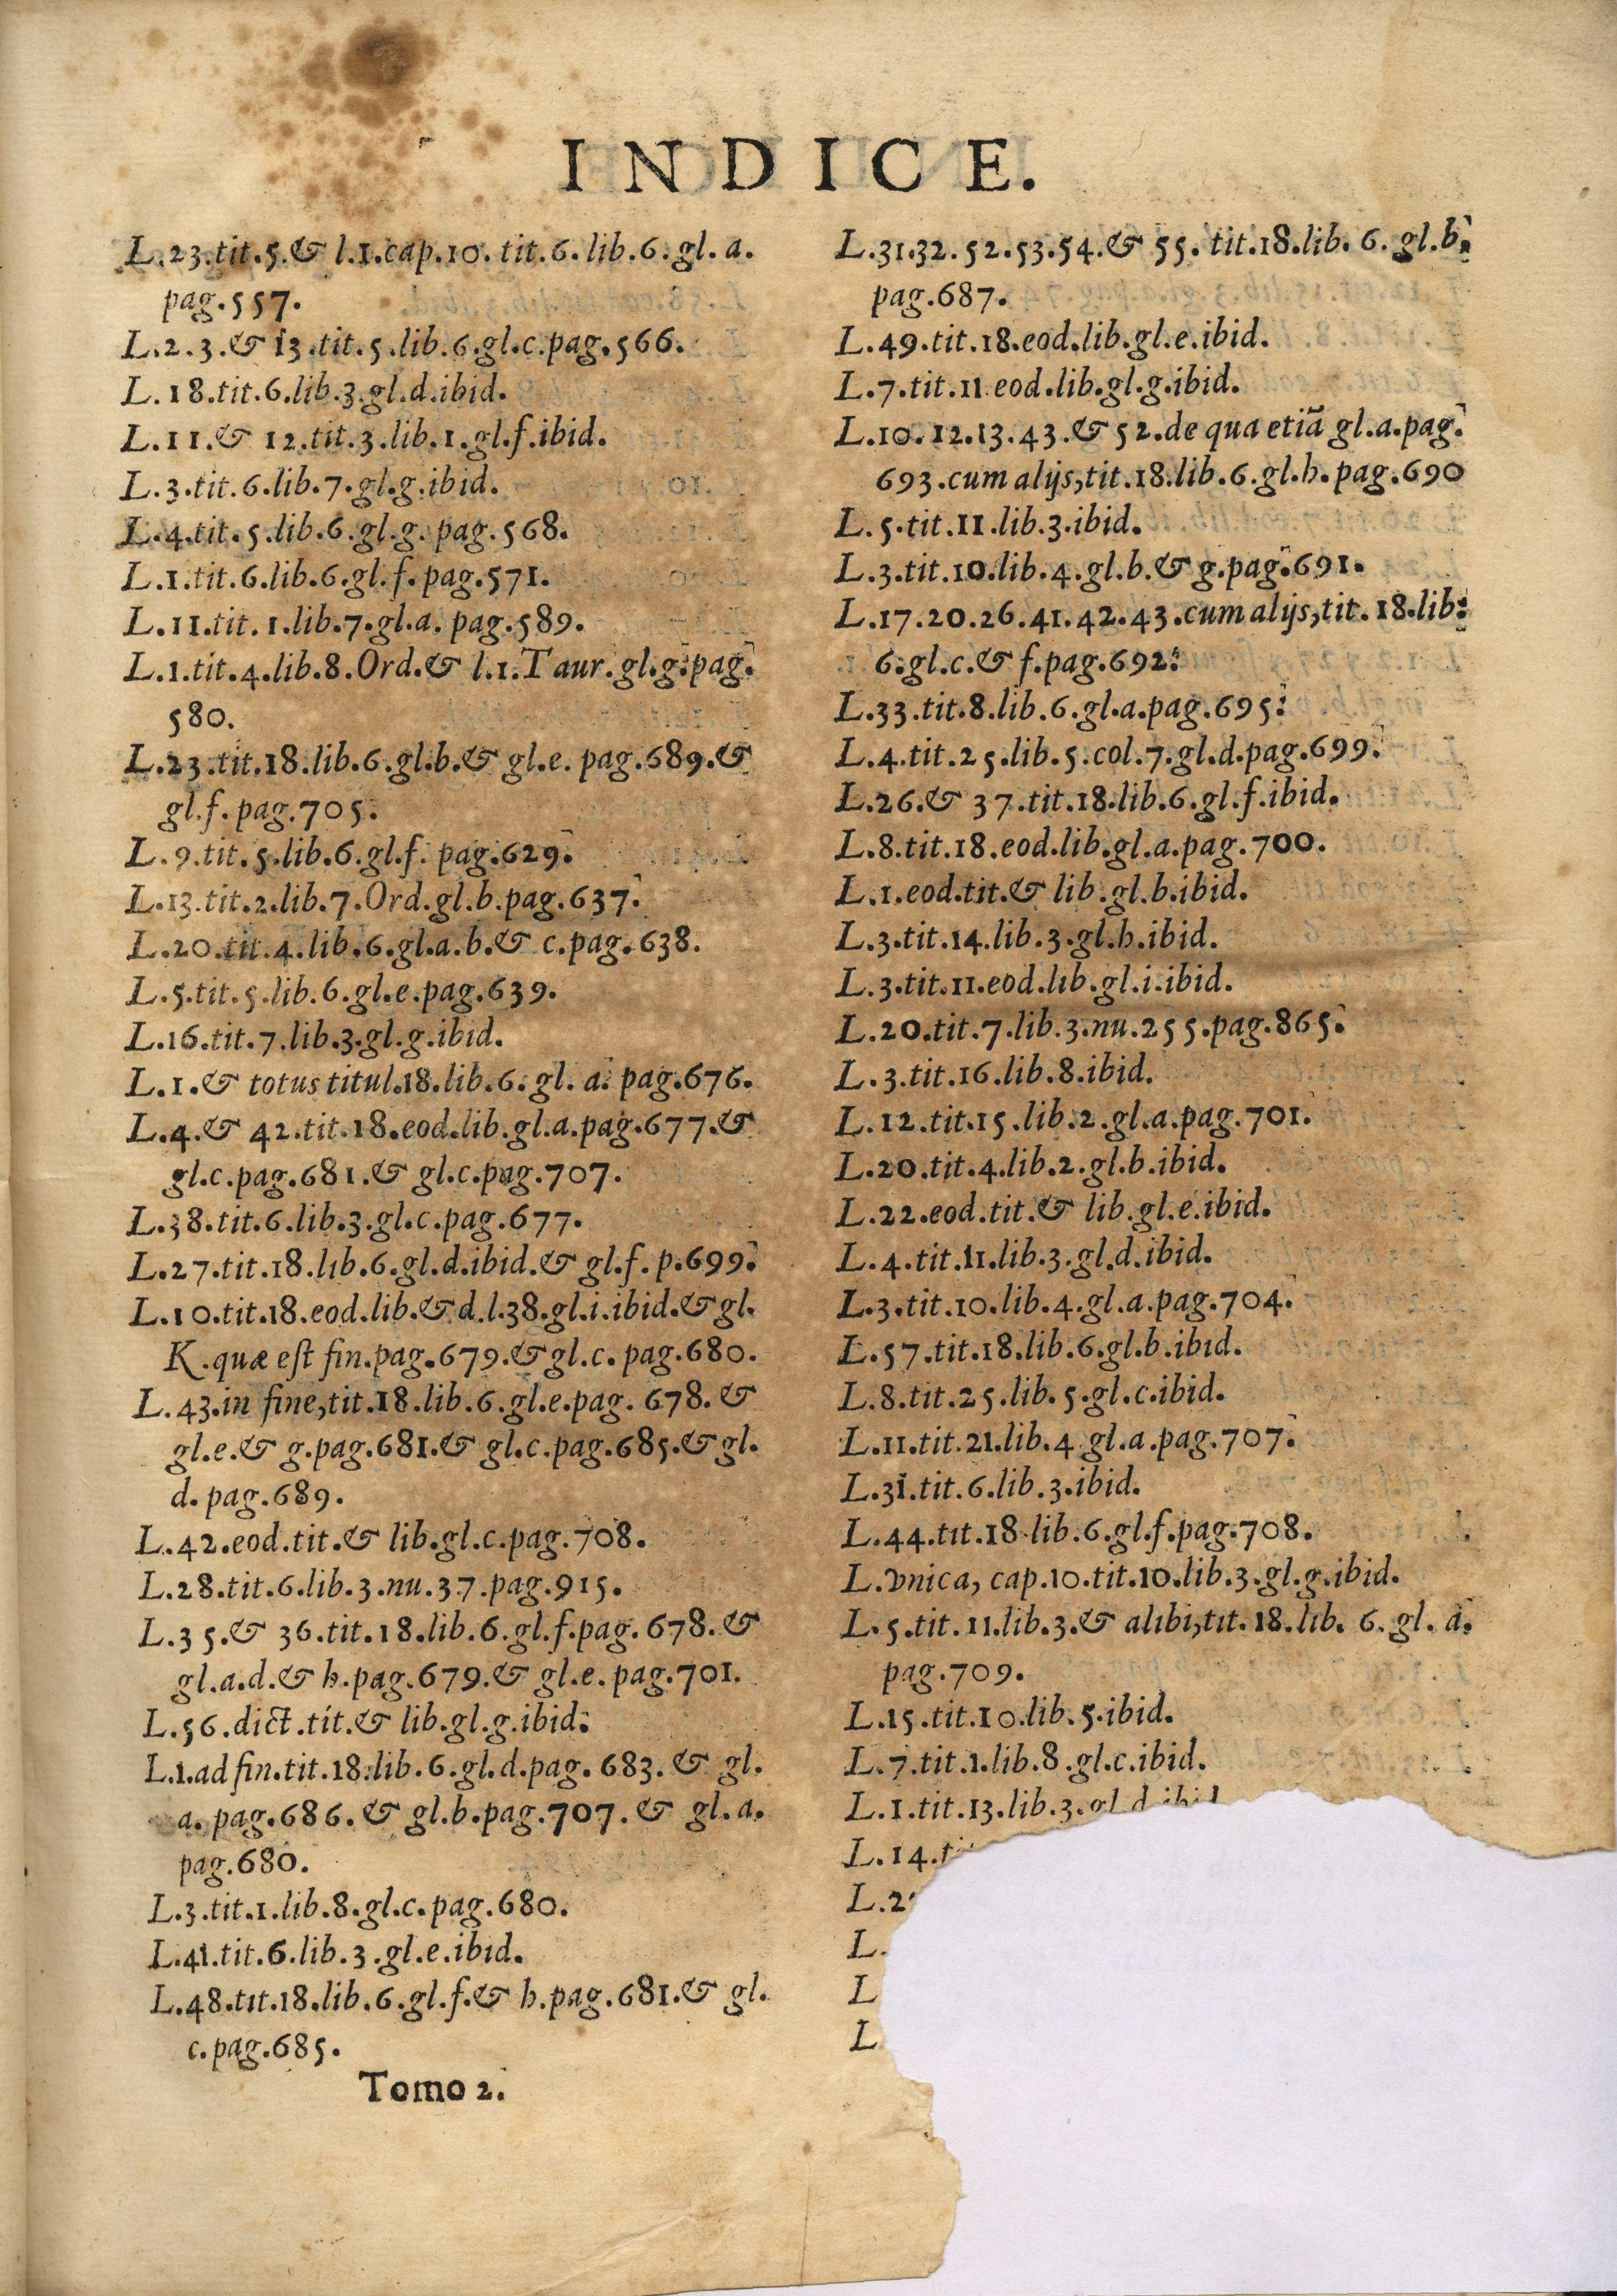 INDICE.
L.23.tit.5.& l.1.cap.10. tit.6.lib.6.gl.a.
pag.557.
L.2.3.& 13.tit.5.lib.6.gl.c.pag.566.
L.18.tit.6.lib.3.gl.d.ibid.
L.11.& 12.tit.3.lib.1.gl.f.ibid.
L.3.tit.6.lib.7.gl.g.ibid.
L.4.tit.5.lib.6.gl.g. pag.568.
L.1.tit.6.lib.6.gl.f. pag.571.
L.11.tit.1.lib.7.gl.a. pag.589.
L.1.tit.4.lib.8.Ord.& l.1.Taur.gl.g.pag.
580.
L.23.tit.18.lib.6.gl.b.& gl.e. pag.689.&
gl.f. pag.705.
L.9.tit.5.lib.6.gl.f. pag.629.
L.13.tit.2.lib.7.Ord.gl.b.pag.637.
L.20.tit.4.lib.6.gl.a.b.& c.pag.638.
L.5.tit.5.lib.6.gl.e.pag.639.
L.16.tit.7.lib.3.gl.g.ibid.
L.1.& totus titul.18.lib.6. gl. a. pag.676.
L.4.& 42.tit.18.eod.lib.gl.a.pag.677.&
gl.c.pag.681.& gl.c.pag.707.
L.38.tit.6.lib.3.gl.c.pag.677.
L.27.tit.18.lib.6.gl.d.ibid.& gl.f. p.699.
L.10.tit.18.eod.lib.& d.l.38.gl.i.ibid.& gl.
K.quæ est fin.pag.679.& gl.c. pag.680.
L.43.in fine,tit.18.lib.6.gl.e.pag. 678. &
gl.e.& g.pag.681.& gl.c.pag.685.& gl.
d. pag.689.
L.42.eod.tit.& lib.gl.c.pag.708.
L.28.tit.6.lib.3.nu.37.pag.915.
L.35.& 36.tit.18.lib.6.gl.f.pag. 678. &
gl.a.d.& h.pag.679.& gl.e. pag.701.
L.56.dict.tit.& lib.gl.g.ibid.
L.1.ad fin.tit.18.lib.6.gl.d.pag. 683. & gl.
a. pag.686. & gl.b.pag.707. & gl.a.
pag.680.
L.3.tit.1.lib.8.gl.c.pag.680.
L.41.tit.6.lib.3.gl.e.ibid.
L.48.tit.18.lib.6.gl.f.& h.pag.681.& gl.
c.pag.685.
Tomo 2.
L.31.32.52.53.54.& 55. tit.18.lib. 6. gl.b.
pag.687.
L.49.tit.18.eod.lib.gl.e.ibid.
L.7.tit.11 eod.lib.gl.g.ibid.
L.10.12.13.43.& 52.de qua etiã gl.a.pag.
693.cum alijs,tit.18.lib.6.gl.h.pag.690
L.5.tit.11.lib.3.ibid.
L.3.tit.10.lib.4.gl.b.& g.pag.691.
L.17.20.26.41.42.43.cum alijs,tit.18.lib.
6.gl.c.& f.pag.692.
L.33.tit.8.lib.6.gl.a.pag.695.
L.4.tit.25.lib.5.col.7.gl.d.pag.699.
L.26.& 37.tit.18.lib.6.gl.f.ibid.
L.8.tit.18.eod.lib.gl.a.pag.700.
L.1.eod.tit.& lib.gl.b.ibid.
L.3.tit.14.lib.3.gl.h.ibid.
L.3.tit.11.eod.lib.gl.i.ibid.
L.20.tit.7.lib.3.nu.255.pag.865.
L.3.tit.16.lib.8.ibid.
L.12.tit.15.lib.2.gl.a.pag.701.
L.20.tit.4.lib.2.gl.b.ibid.
L.22.eod.tit.& lib.gl.e.ibid.
L.4.tit.11.lib.3.gl.d.ibid.
L.3.tit.10.lib.4.gl.a.pag.704.
L.57.tit.18.lib.6.gl.b.ibid.
L.8.tit.25.lib.5.gl.c.ibid.
L.11.tit.21.lib.4.gl.a.pag.707.
L.31.tit.6.lib.3.ibid.
L.44.tit.18.lib.6.gl.f.pag.708.
L.vnica, cap.10.tit.10.lib.3.gl.g.ibid.
L.5.tit.11.lib.3.& alibi,tit.18.lib. 6. gl. a.
pag.709.
L.15.tit.10.lib.5.ibid.
L.7.tit.1.lib.8.gl.c.ibid.
L.1.tit.13.lib.3.gl.d.ibid
L.14.
L.2
L.
L
L